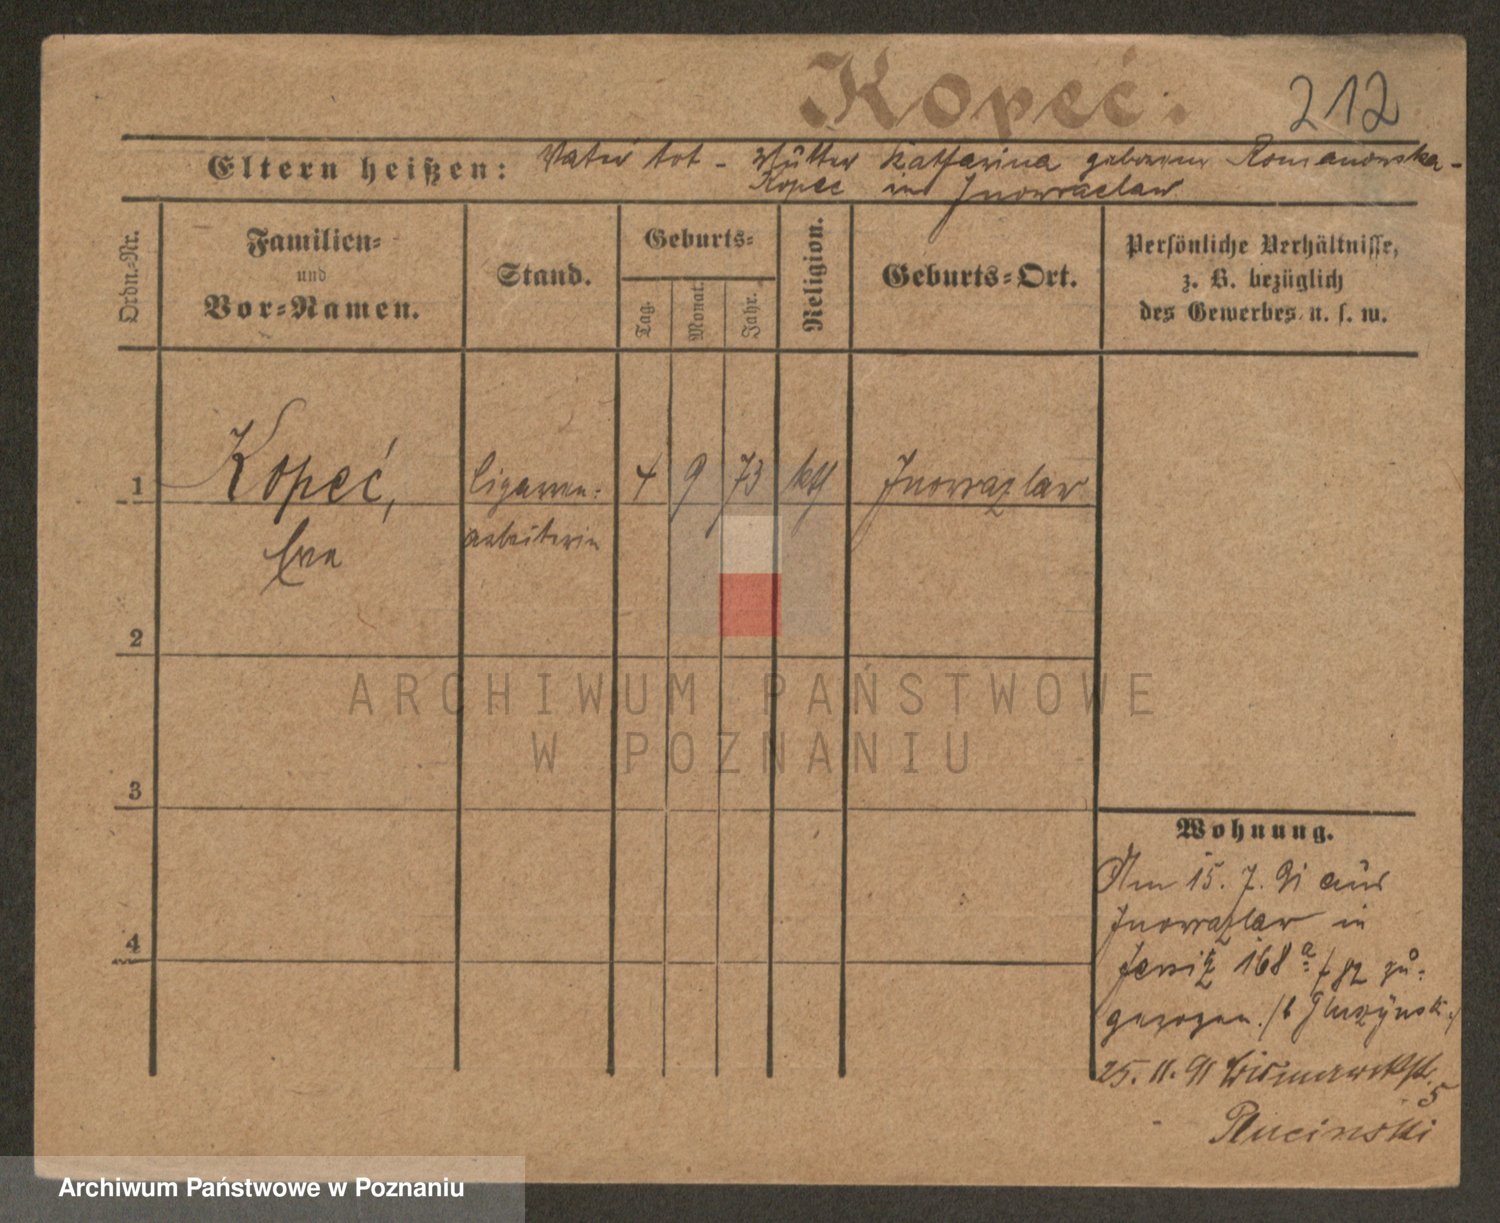 Kopeć.
212
Eltern heißen: Vater tot - Mutter Katharina geborene Romanowska-
Kopec in Inowraclaw
Ordn.-Nr.
Familien-
und
Vor-Namen.
Stand.
Geburts-
Tag.
Monat.
Jahr.
Religion.
Geburts-Ort.
Persönliche Verhältnisse,
z. B. bezüglich
des Gewerbes u. s. w.
1 Kopeć, Cigarren- 4 9 73 kth Inowrazlaw
Eva arbeiterin
2
3
4
Wohnung.
Am 15. 7. 91 aus
Inowrazlaw in
Jersitz 168 a zu-
gezogen.
25. 11. 91 Bismarckstr. 5
Plucinski
ARCHIWUM PAŃSTWOWE
W POZNANIU
Archiwum Państwowe w Poznaniu